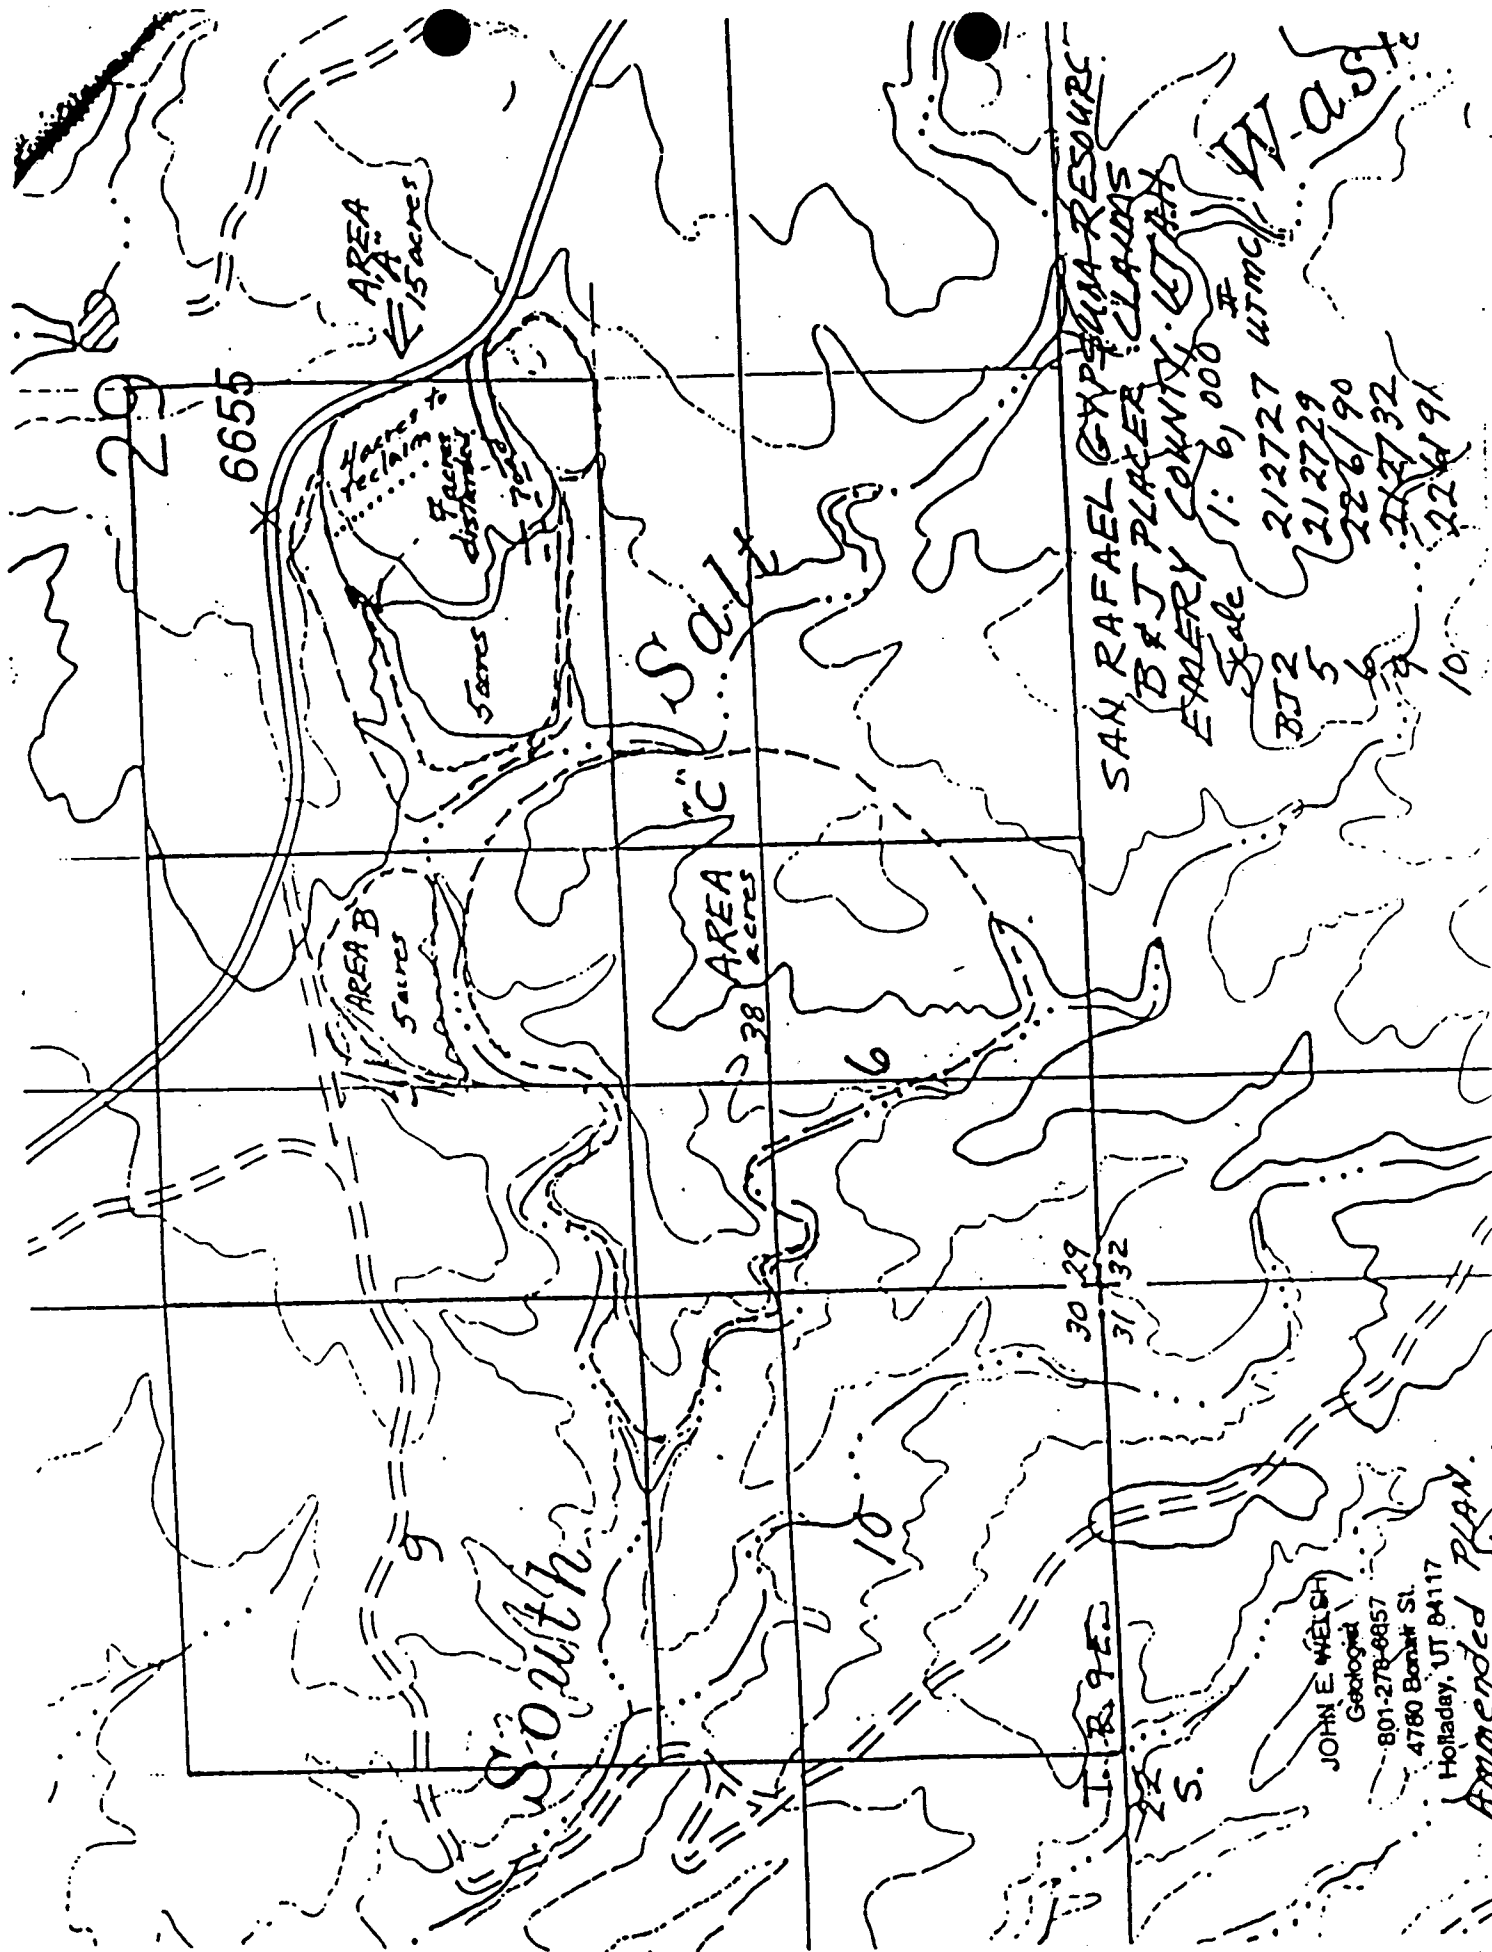 29
6655
X
AREA
"A"
15 acres
4 acres to
reclaim
9 acres
disturbed
road
5 acres
AREA B
5 acres
South Salt Wast
AREA "C"
38 acres
6
9
10
30 29
31 32
T. R. 9 E.
22
S.
SAN RAFAEL GYPSUM RESOURC
B & J PLACER CLAIMS
EMERY COUNTY, UTAH
Scale 1: 6,000
# UTMC
BJ 2 212727
5 212729
6 226190
9 212732
10 226191
JOHN E. WELSH
Geologist
801-278-6857
4780 Bonair St.
Holladay, UT 84117
Ammended PLAN.